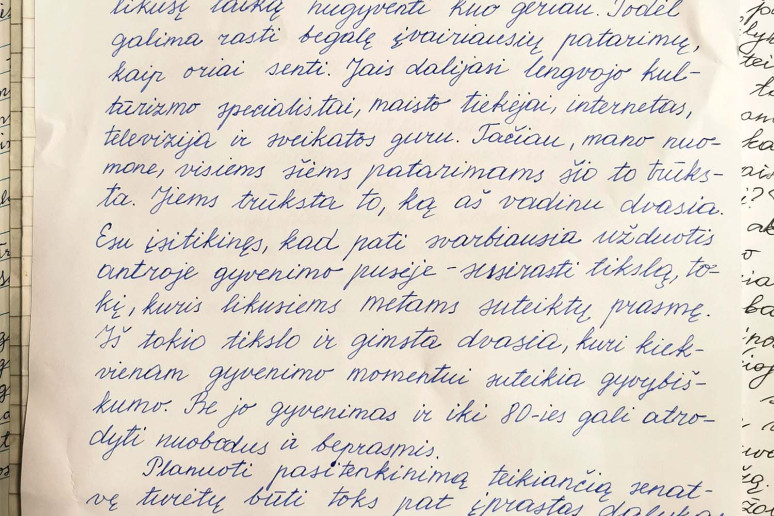 likusį laiką nugyventi kuo geriau. Todėl
galima rasti begalę įvairiausių patarimų,
kaip oriai senti. Jais dalijasi lengvojo kul-
tūrizmo specialistai, maisto tiekėjai, internetas,
televizija ir sveikatos guru. Tačiau, mano nuo-
mone, visiems šiems patarimams šio to trūks-
ta. Jiems trūksta to, ką aš vadinu dvasia.
Esu įsitikinęs, kad pati svarbiausia užduotis
antroje gyvenimo pusėje - susirasti tikslą, to-
kį, kuris likusiems metams suteiktų prasmę.
Iš tokio tikslo ir gimsta dvasia, kuri kiek-
vienam gyvenimo momentui suteikia gyvybiš-
kumo. Be jo gyvenimas ir iki 80-ies gali atro-
dyti nuobodus ir beprasmis.
Planuoti pasitenkinimą teikiančią senat-
vę turėtų būti toks pat įprastas dalykas